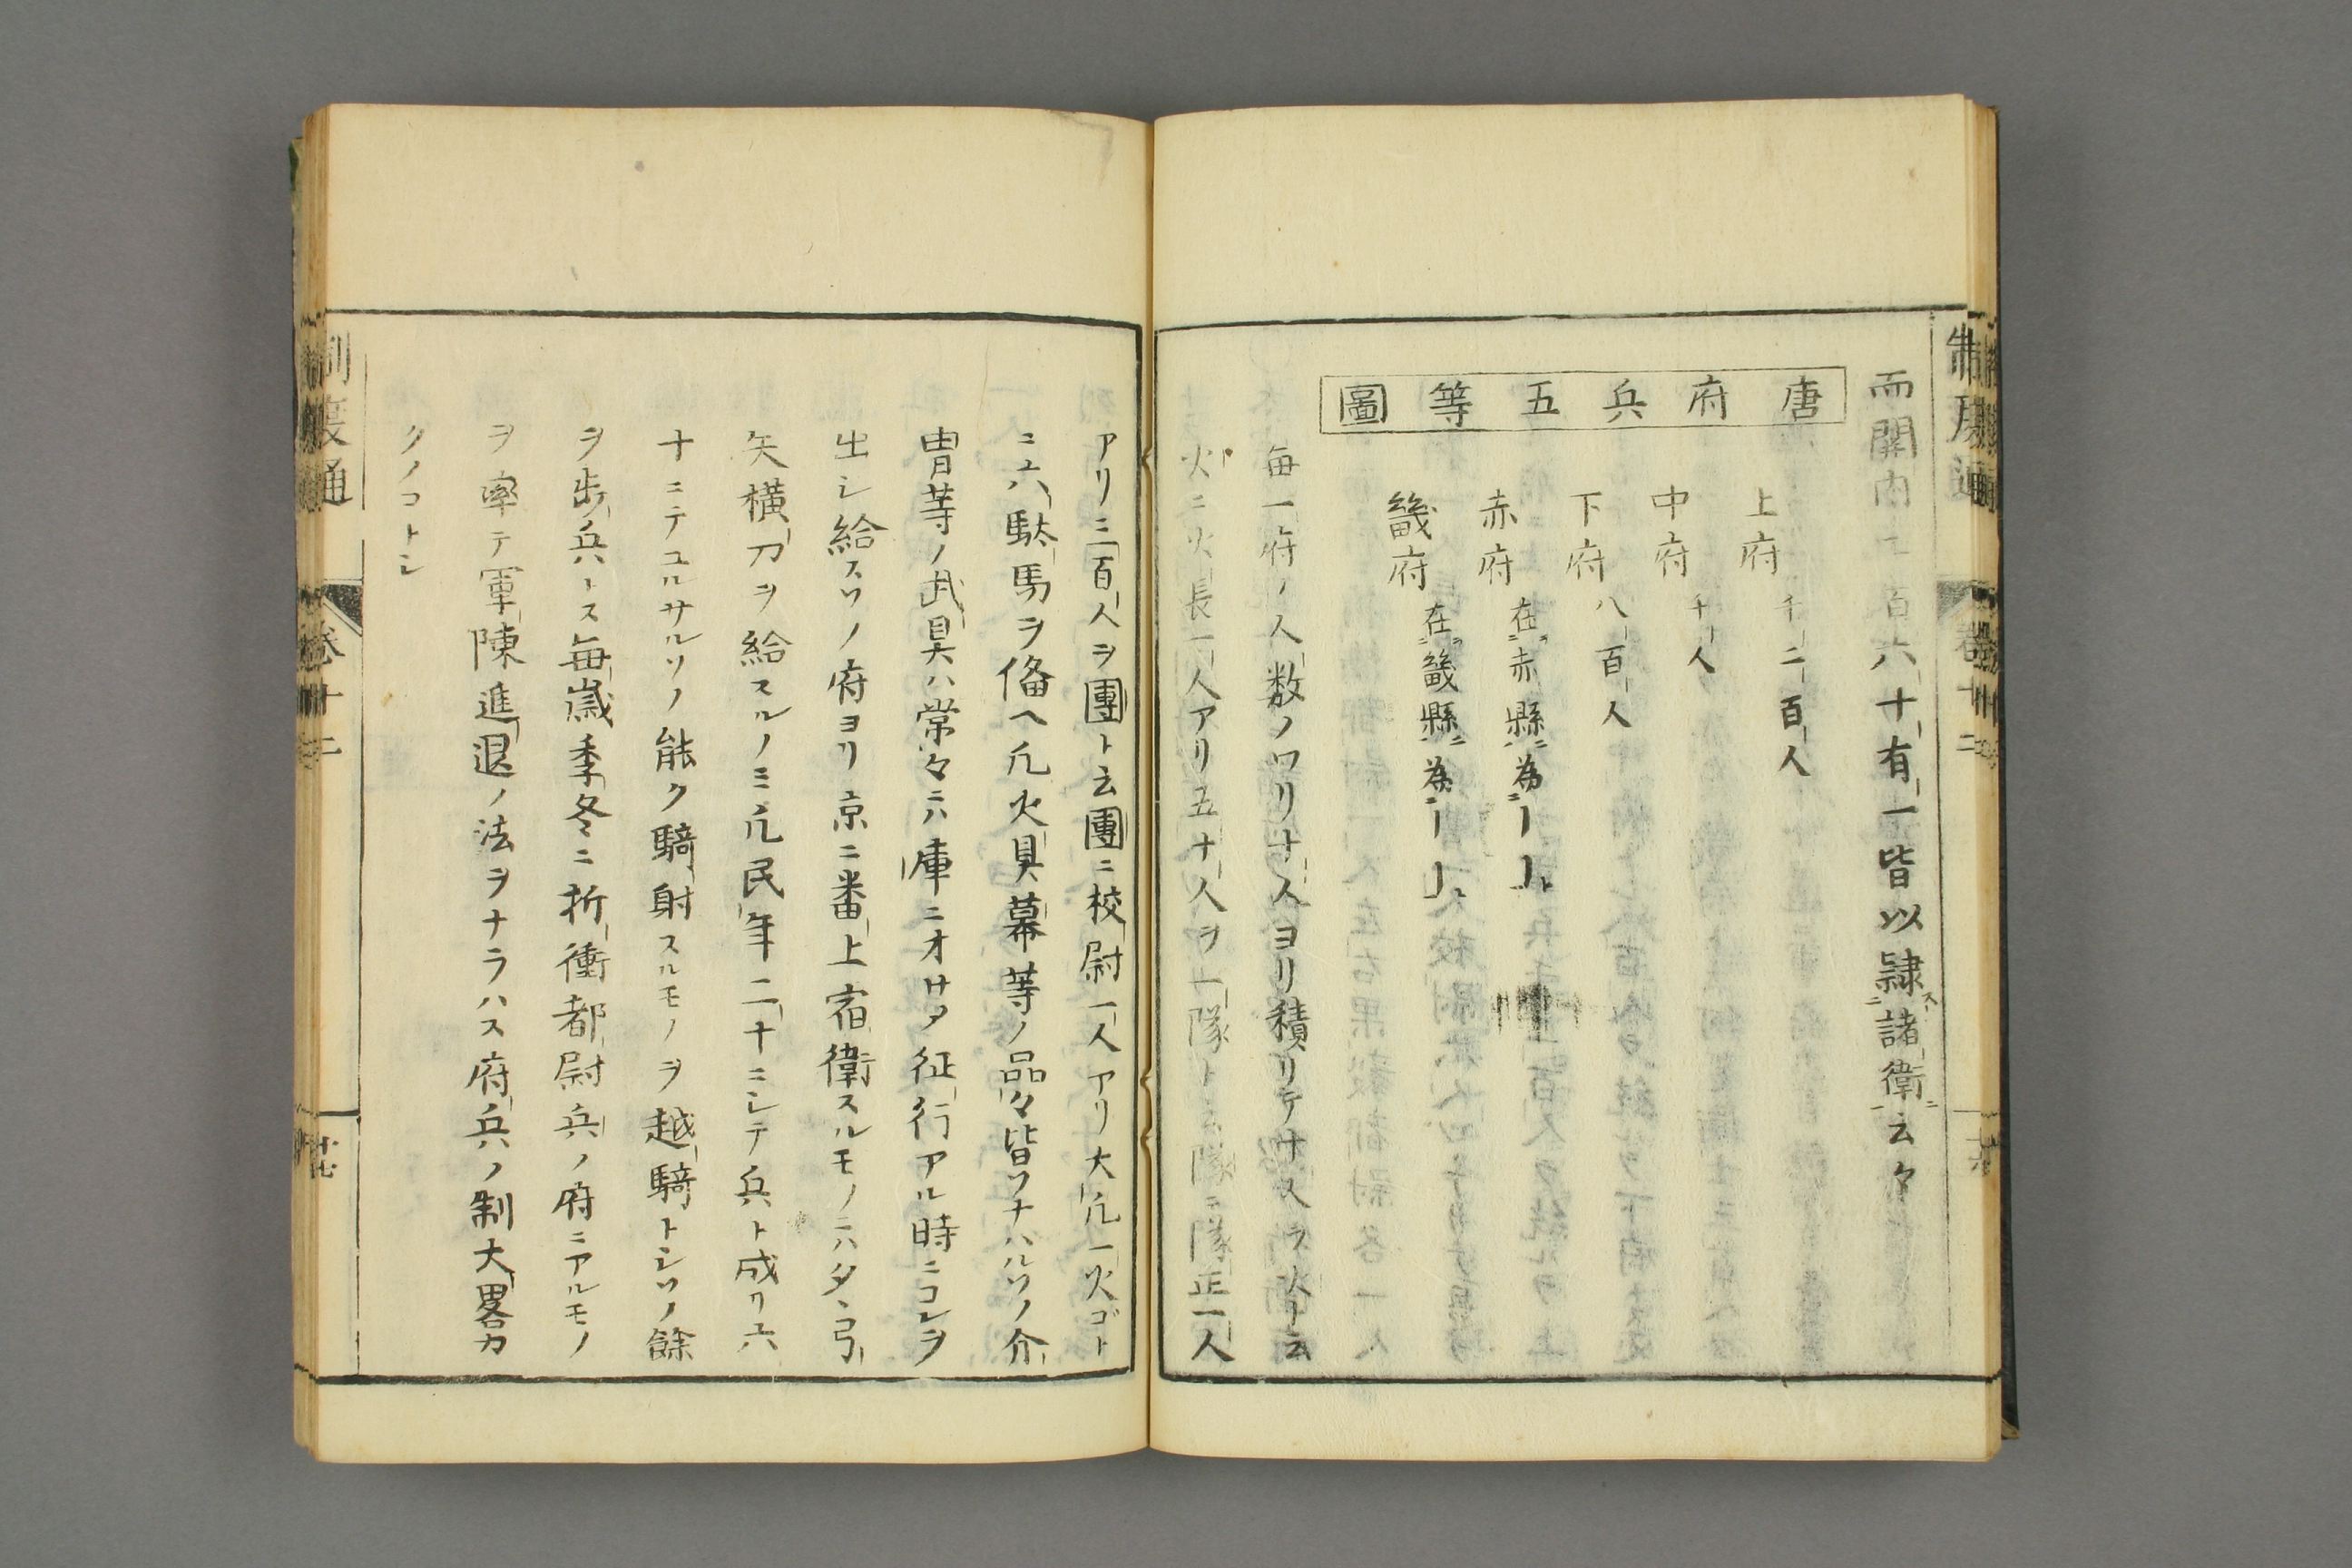 而關內二百六十有一皆以隷諸衛云々
唐府兵五等圖
上府 千二百人
中府 千人
下府 八百人
赤府 在赤縣為
畿府 在畿縣為
毎一府ノ人数ノワリ十人ヨリ積リテナスヲ火ト云
火ニ火長一人アリ五十人ヲ一隊ト云隊ニ隊正一人
アリ三百人ヲ團ト云團ニ校尉一人アリ大凡一火ゴト
ニ六駄馬ヲ備ヘ凡火具幕等ノ品々皆ソナハルソノ介
冑等ノ武具ハ常々ニハ庫ニオサメ征行アル時ニコレヲ
出シ給スソノ府ヨリ京ニ番上宿衛スルモノニハタヽ弓
矢横刀ヲ給スルノミ凡民年二十ニシテ兵ト成リ六
十ニテユルサルソノ能ク騎射スルモノヲ越騎トシソノ餘
ヲ歩兵トス毎歳季冬ニ折衝都尉兵ノ府ニアルモノ
ヲ率テ軍陳進退ノ法ヲナラハス府兵ノ制大畧カ
クノコトシ
制度通
卷十二
十七